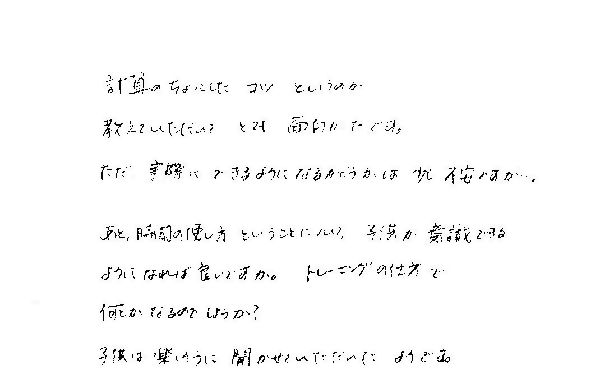 計算のちょっとした コツ というのが
教えていただいて とても 面白かったです。
ただ 実際に できるようになるかどうかは 少し 不安ですが…。
あと、時間の使い方 ということについて、子供が 意識できる
ように なれば 良いですが。 トレーニングの仕方で
何とか なるのでしょうか?
子供は 楽しそうに 聞かせていただいた ようです